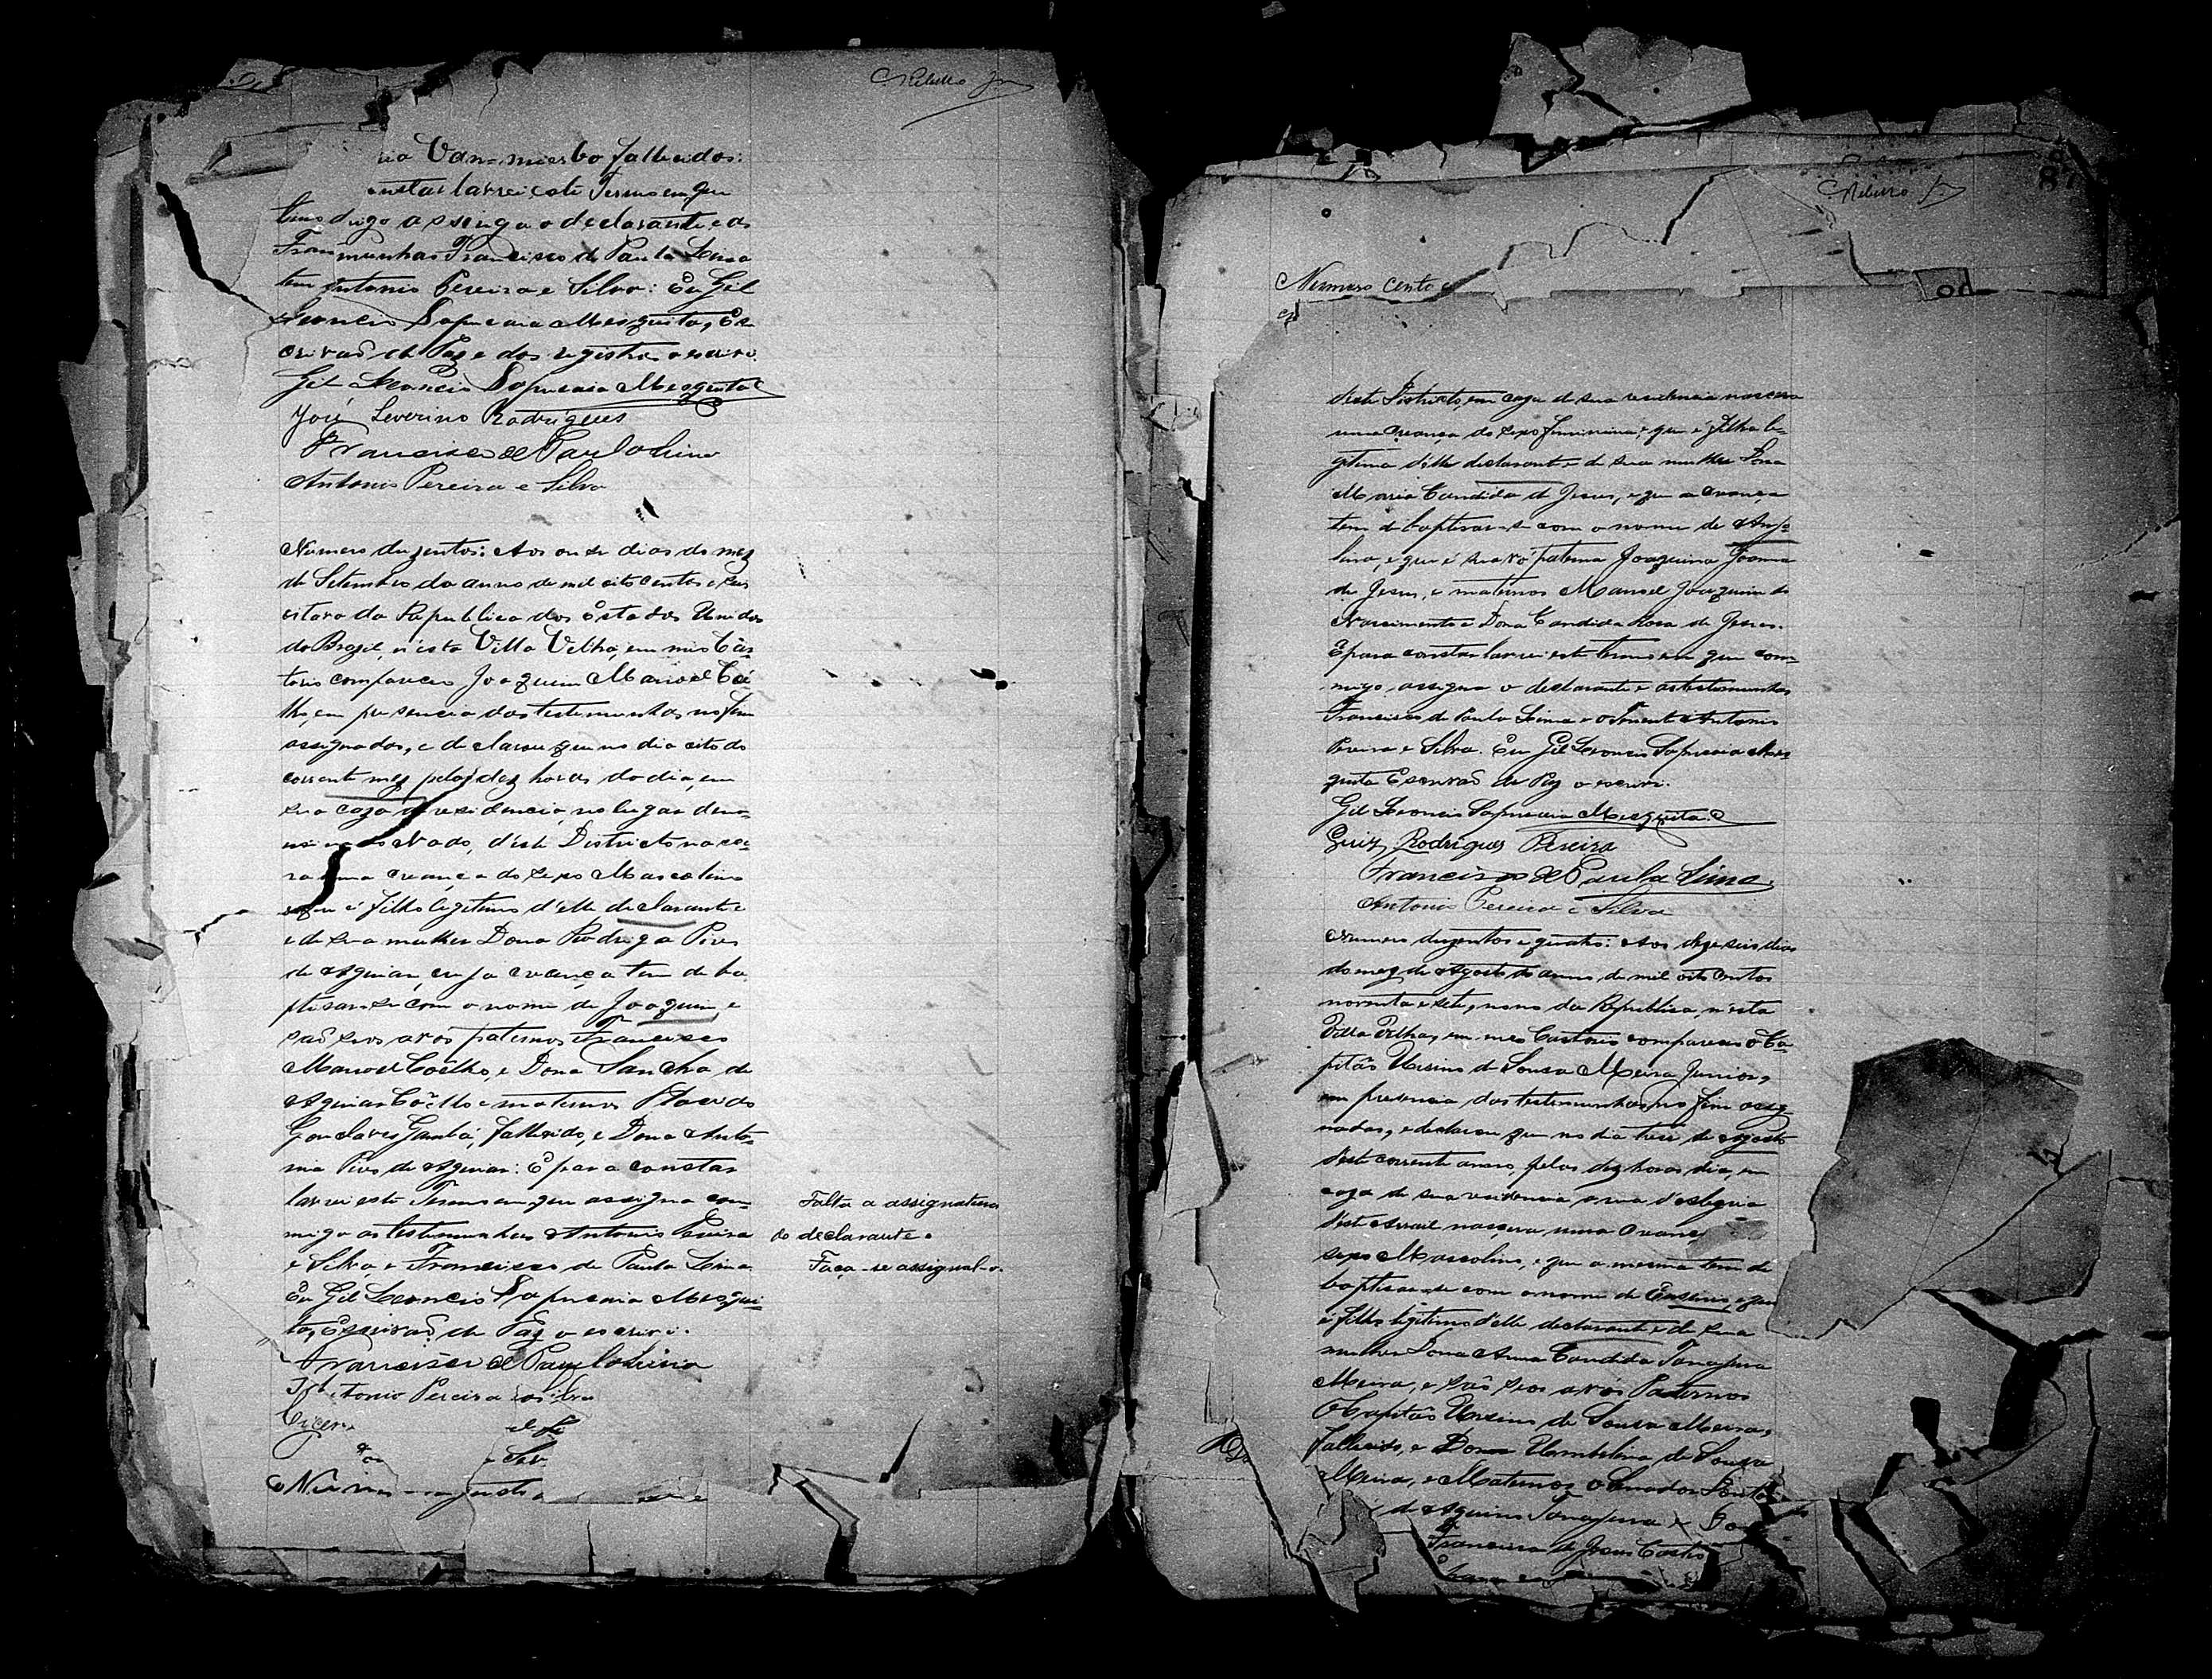 Rebello Jor
Van-miesbo fallecidos:
constar lavrei este Termo em que
digo assigna o declarante e as
munhas Francisco de Paula Lima
Antonio Pereira e Silva: Eu Gil
Leoncio Sapucaia Mesquita, Es-
crivaõ de Paz e dos registros o escrivi.
Gil Leoncio Sapucaia Mesquita
José Severino Rodrigues
Francisco de Paula Lima
Antonio Pereira e Silva
Numero duzentos: Aos onze dias do mez
de Setembro do anno de mil oito centos e
oitavo da Republica dos Estados Unidos
do Brazil, n'esta Villa Velha, em meo Car-
torio compareceo Joaquim Manoel Coê
lho, em presencia das testemunhas no fim
assignadas, e declarou que no dia oito do
corrente mez pelas dez horas do dia, em
sua caza de residencia, no lugar deno-
minado Vado, d'este Districto nasce-
ra uma creança do sexo Mascolino
e que é filho legitimo d'elle declarante
e de sua mulher Dona Rodriga Pires
de Aguiar, cuja creança tem de ba
ptisar-se com o nome de Joaquim, e
saõ seos avós paternos Francisco
Manoel Coêlho, e Dona Sancha de
Aguiar Coêlho e maternos
Gonçalves Gambá, fallecido, e Dona Anto-
nia Pires de Aguiar: E para constar
lavrei este Termo em que assigna com-
migo as testemunhas Antonio Pereira
e Silva e Francisco de Paula Lima
Eu Gil Leoncio Sapucaia Mesqui-
ta, Escrivaõ de Paz o escrivi.
Francisco de Paula Lima
Antonio Pereira e Silva
Falta a assignatura
do declarante.
Faça-se assignal-o.
Rebello Jor
87
Numero cento e
deste Districto, em caza de sua residencia nascera
uma creança do sexo feminino, e que é filha le-
gitima d'elle declarante e de sua mulher Dona
Maria Candida de Jesus, e que a creança
tem de baptisar-se com o nome de Ange
lina, e que é sua vó paterna Joaquina Joanna
de Jesus, e maternos Manoel Joaquim do
Nascimento e Dona Candida Rosa de Jesus.
E para constar lavrei este termo em que com-
migo assigna o declarante e as testemunhas
Francisco de Paula Lima e o Tenente Antonio
Pereira e Silva. Eu Gil Leoncio Sapucaia Mes-
quita Escrivaõ de Paz o escrivi.
Gil Leoncio Sapucaia Mesquita
Luiz Rodrigues Pereira
Francisco de Paula Lima
Antonio Pereira e Silva
Numero duzentos e quatro: Aos dezeseis dias
do mez de Agosto do anno de mil oito centos
noventa e sete, nono da Republica, n'esta
Villa Velha, em meo Cartorio compareceo o Ca-
pitão Ursino de Sousa Meira Junior,
em presencia das testemunhas no fim assig
nadas, e declarou que no dia treze de Agosto
deste corrente anno, pelas dez horas dia, em
caza de sua residencia a rua d'Alegria
deste Arraial nascera uma creança
sexo Mascolino, e que a mesma tem de
baptisar-se com o nome de e que
é filho legitimo d'elle declarante e de sua
mulher Dona Anna Candida Tanajura
Meira, e saõ seos avós Paternos
O Capitão Ursino de Sousa Meira,
fallecido, e Dona Umbelina de Sousa
Meira, e Maternos o Senador
de Aquino Tanajura e
Francisca de Jesus Castro